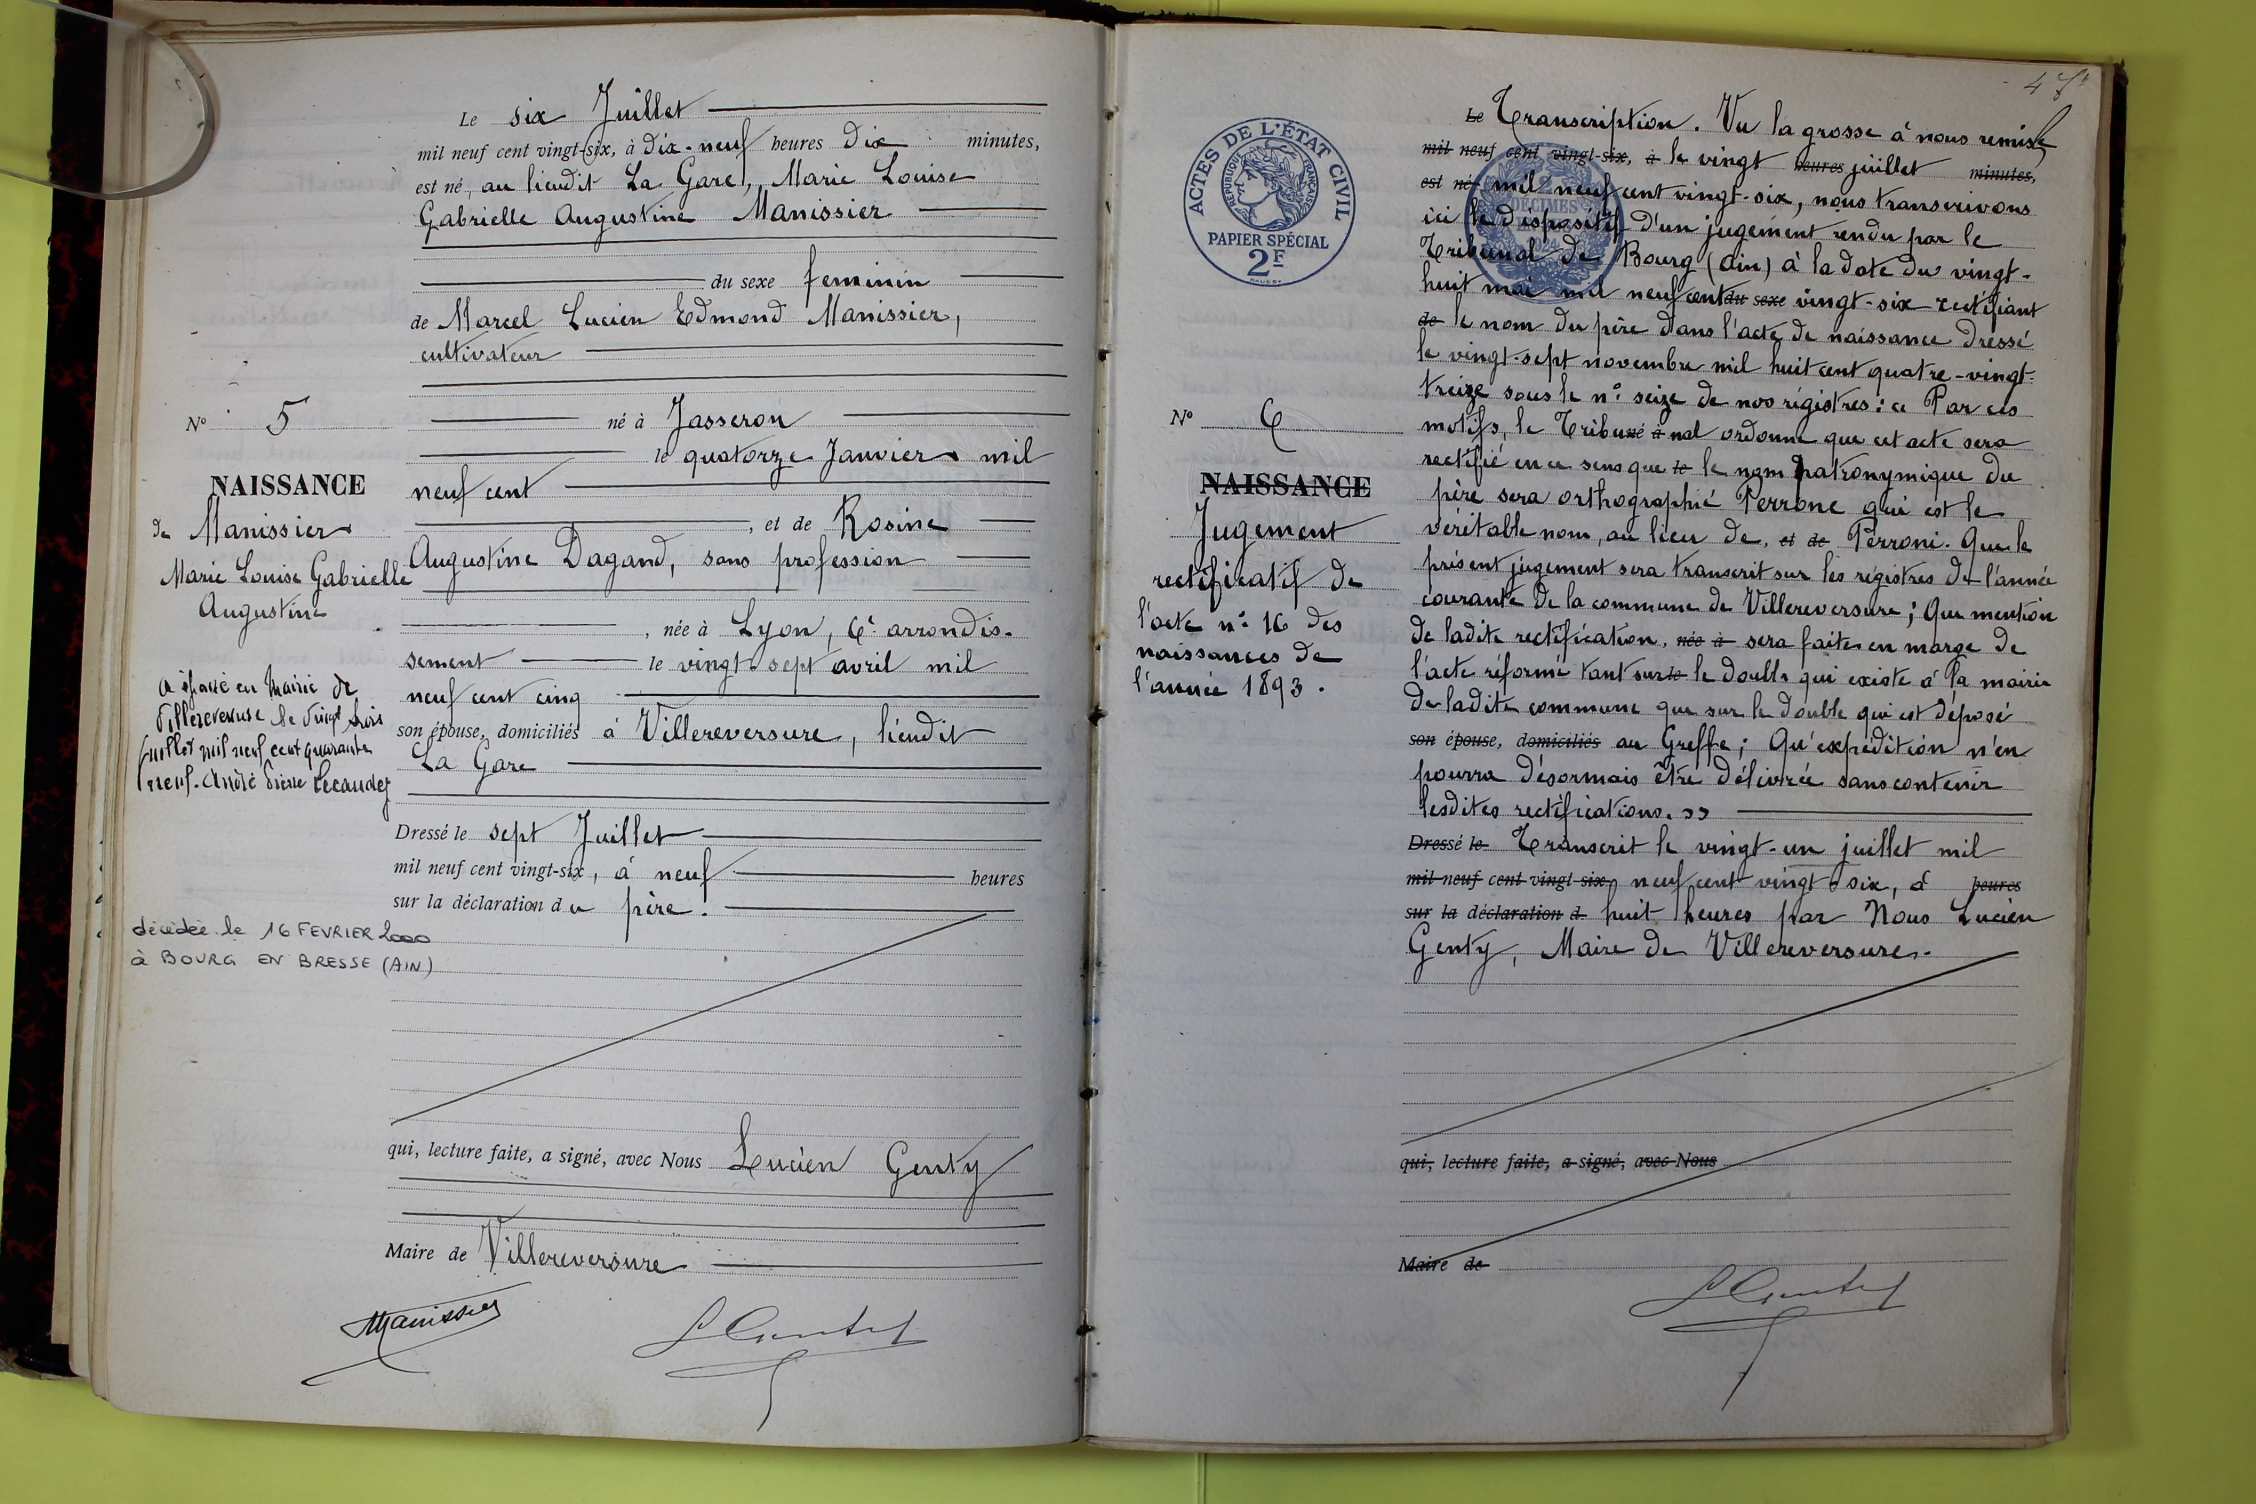 Le six Juillet
mil neuf cent vingt-six, à dix-neuf heures dix minutes,
est né, au lieudit La Gare, Marie Louise
Gabrielle Augustine Manissier
du sexe feminin
de Marcel Lucien Edmond Manissier,
cultivateur
né à Jasseron
le quatorze Janvier mil
neuf cent
, et de Rosine
Augustine Dagand, sans profession
, née à Lyon, 6e arrondis-
sement le vingt sept avril mil
neuf cent cinq
son épouse, domiciliés à Villereversure, lieudit
La Gare
Dressé le sept Juillet
mil neuf cent vingt-six, à neuf heures
sur la déclaration du père.
qui, lecture faite, a signé, avec Nous Lucien Genty
Maire de Villereversure
Manissier
L Genty
No 5
NAISSANCE
de Manissier
Marie Louise Gabrielle
Augustine
a épousé en Mairie de
Villereversure le vingt trois
Juillet mil neuf cent quarante
neuf. André Pierre Lecaudey
décédée le 16 FEVRIER 2000
à BOURG EN BRESSE (AIN)
ACTES DE L'ÉTAT CIVIL
RÉPUBLIQUE FRANÇAISE
PAPIER SPÉCIAL
2F
No 6
NAISSANCE
Jugement
rectificatif de
l'acte n° 16 des
naissances de
l'année 1893.
2
DÉCIMES
Le Transcription. Vu la grosse à nous remise
mil neuf cent vingt-six, à le vingt heures juillet minutes,
est né mil neuf cent vingt-six, nous transcrivons
ici le dispositif d'un jugement rendu par le
Tribunal de Bourg (Ain) à la date du vingt-
huit mai mil neuf cent du sexe vingt-six rectifiant
de le nom du père dans l'acte de naissance dressé
le vingt-sept novembre mil huit cent quatre-vingt-
treize sous le n° seize de nos régistres: « Par ces
motifs, le Tribu né à nal ordonne que cet acte sera
rectifié en ce sens que le le nom patronymique du
père sera orthographié Perrone qui est le
véritable nom, au lieu de, et de Perroni. Que le
présent jugement sera transcrit sur les régistres de l'année
courante de la commune de Villereversure; Que mention
de ladite rectification, née à sera faite en marge de
l'acte réformé tant sur le le double qui existe à la mairie
de ladite commune que sur le double qui est déposé
son épouse, domiciliés au Greffe; Qu'expédition n'en
pourra désormais être délivrée sans contenir
lesdites rectifications. »
Dressé le Transcrit le vingt-un juillet mil
mil neuf cent vingt-six, neuf cent vingt-six, à heures
sur la déclaration d huit heures par Nous Lucien
Genty, Maire de Villereversure.
qui, lecture faite, a signé, avec Nous
Maire de
L Genty